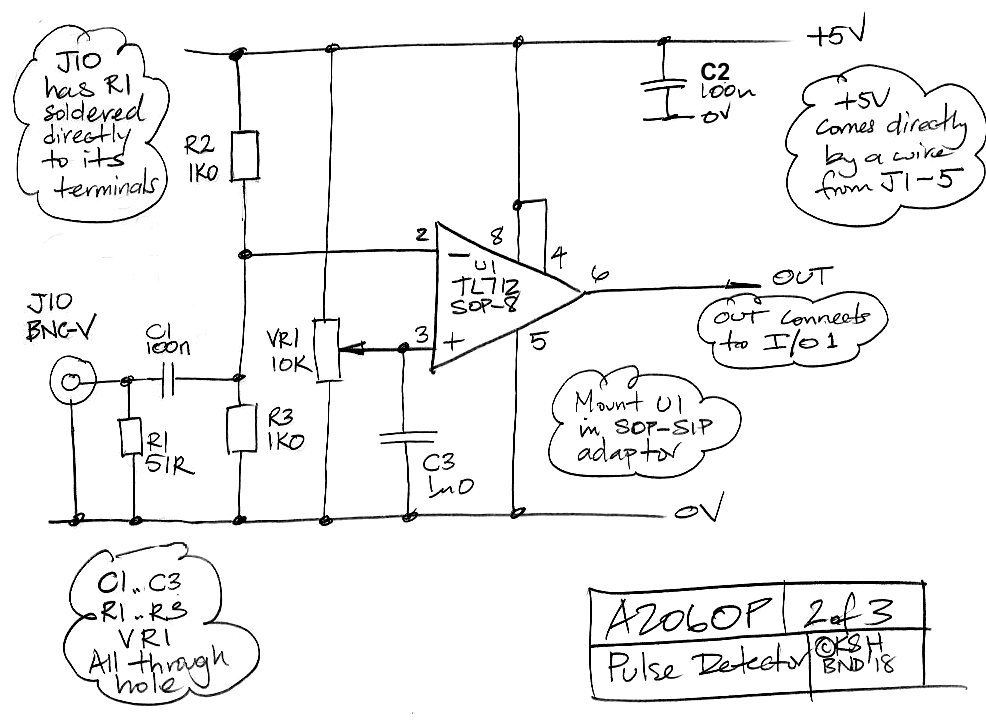 J10
has R1
soldered
directly
to its
terminals
+5V
C2
100n
0V
+5V
comes directly
by a wire
from J1-5
R2
1K0
2
8
4
6
U1
TL712
SOP-8
3
5
OUT
OUT connects
to I/O1
J10
BNC-V
C1
100n
VR1
10K
R1
51R
R3
1K0
C3
1u0
Mount U1
in SOP-SIP
adaptor
0V
C1..C3
R1..R3
VR1
All through
hole
A2060P
2 of 3
Pulse Detector
©KSH
BND '18